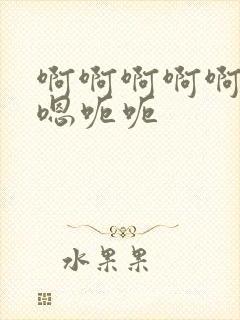 啊啊啊啊啊
嗯呃呃
水果果